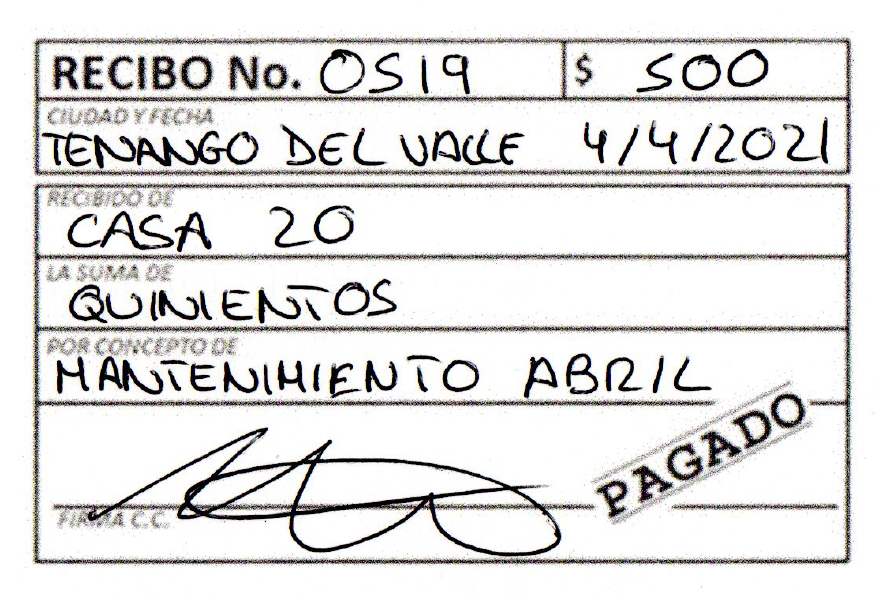 RECIBO No. 0519 $ 500
CIUDAD Y FECHA
TENANGO DEL VALLE 4/4/2021
RECIBIDO DE
CASA 20
LA SUMA DE
QUINIENTOS
POR CONCEPTO DE
MANTENIMIENTO ABRIL
PAGADO
FIRMA C.C.